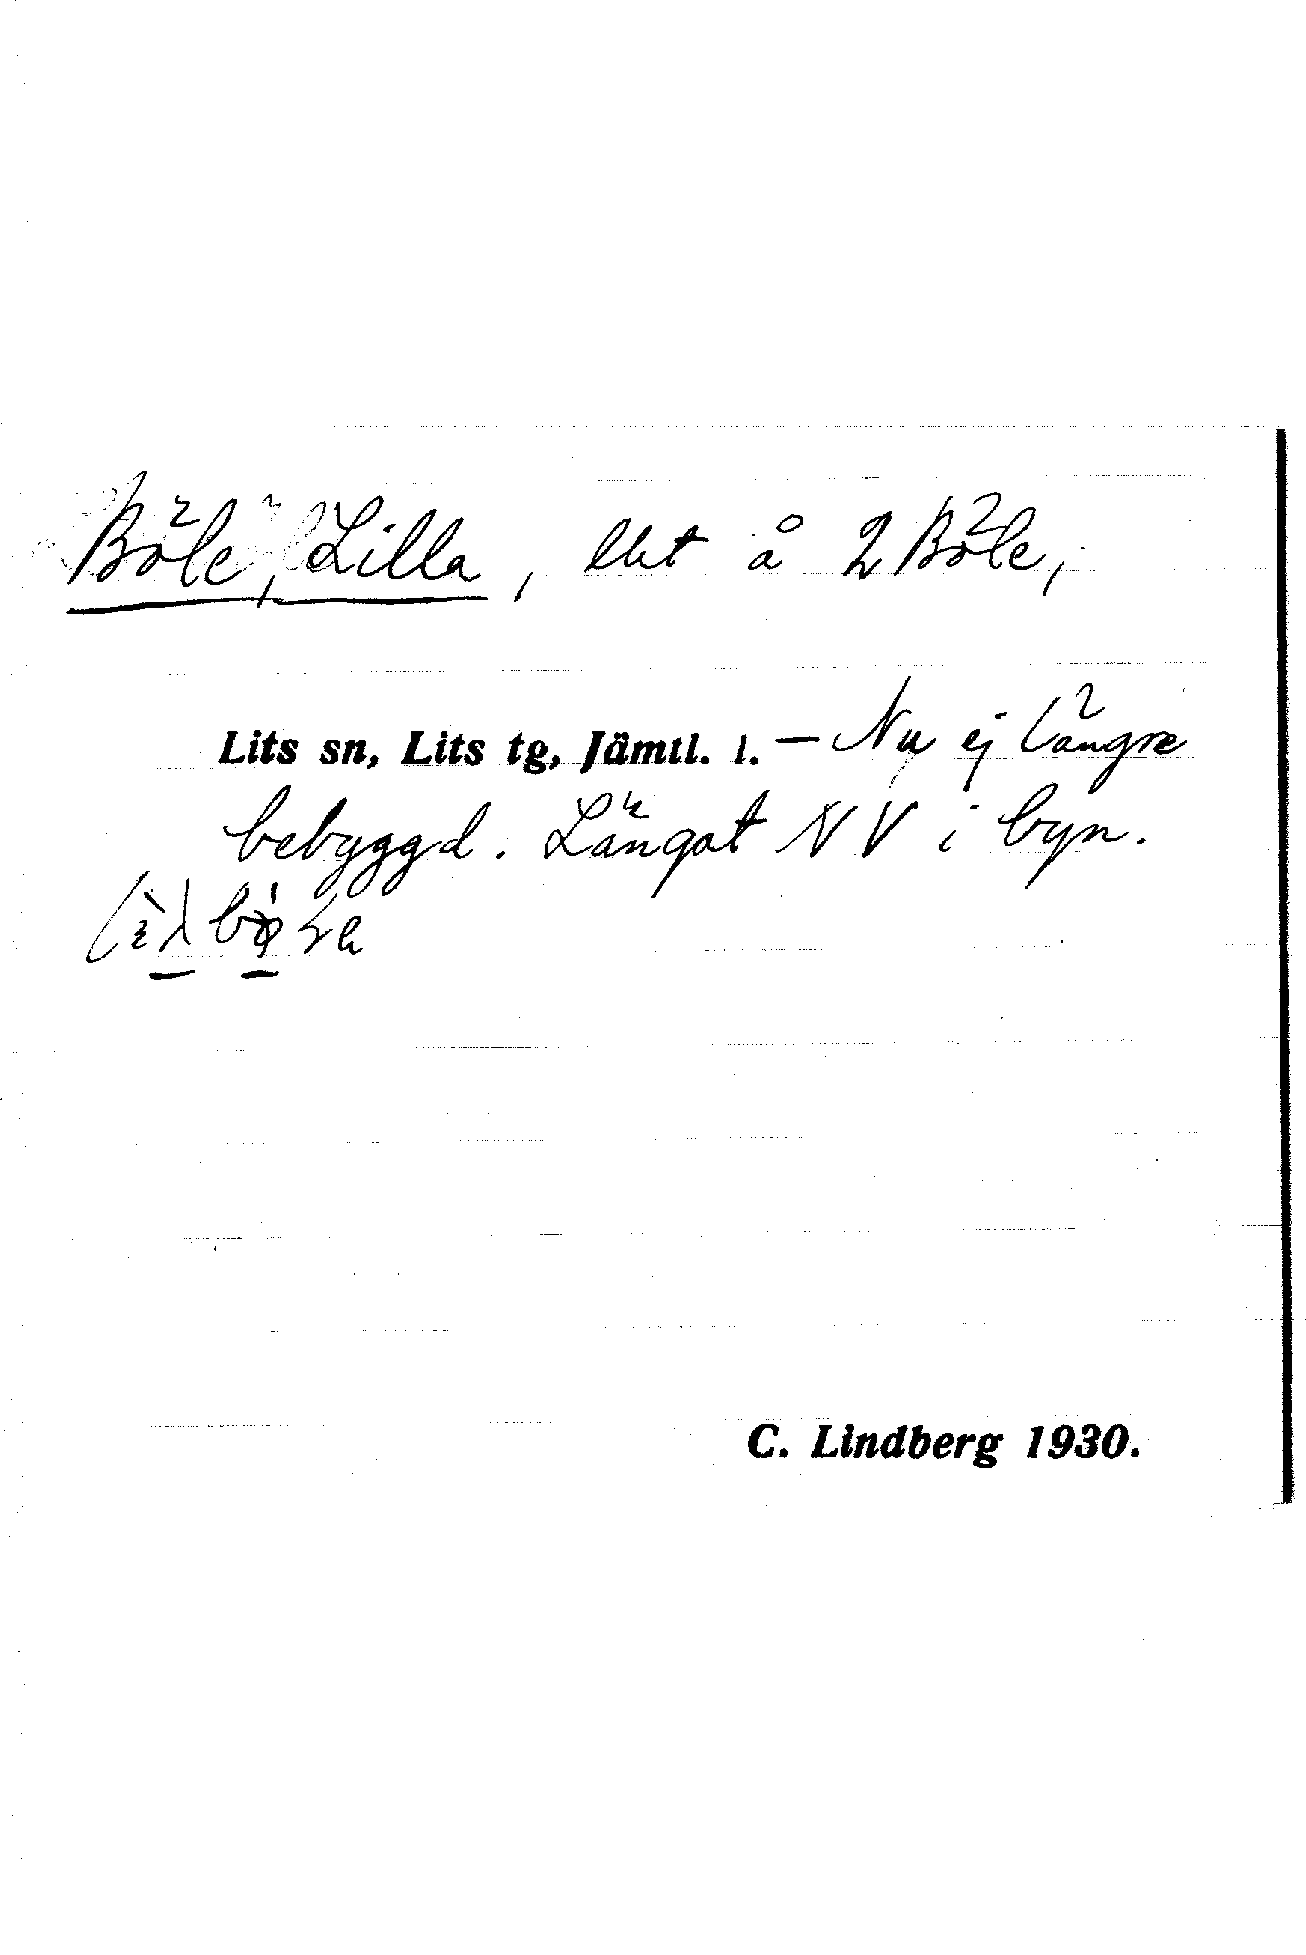 Böle, Lilla, lht å 2 Böle,
Lits sn, Lits tg, Jämtl. l. — Nu ej längre
bebyggd. Längst NV i byn.
C. Lindberg 1930.